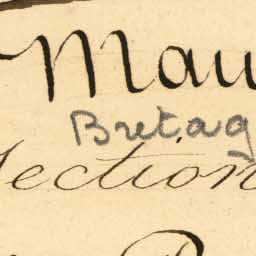 Mau
Bretag
Section